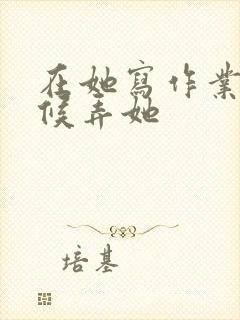 在她寫作業
候弄她
培基